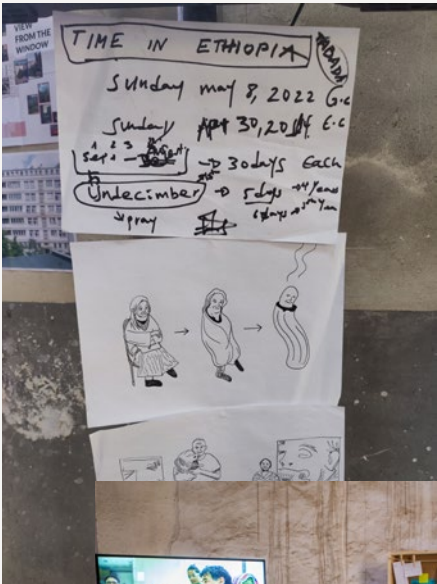 VIEW
FROM THE
WINDOW
TIME IN ETHIOPIA
Sunday may 8, 2022 G.C
Sunday 30, 2014 E.C
1 2 3
Sep → 30 days Each
Undecimber → 5 days → 4 years
6 days →
↘ pray